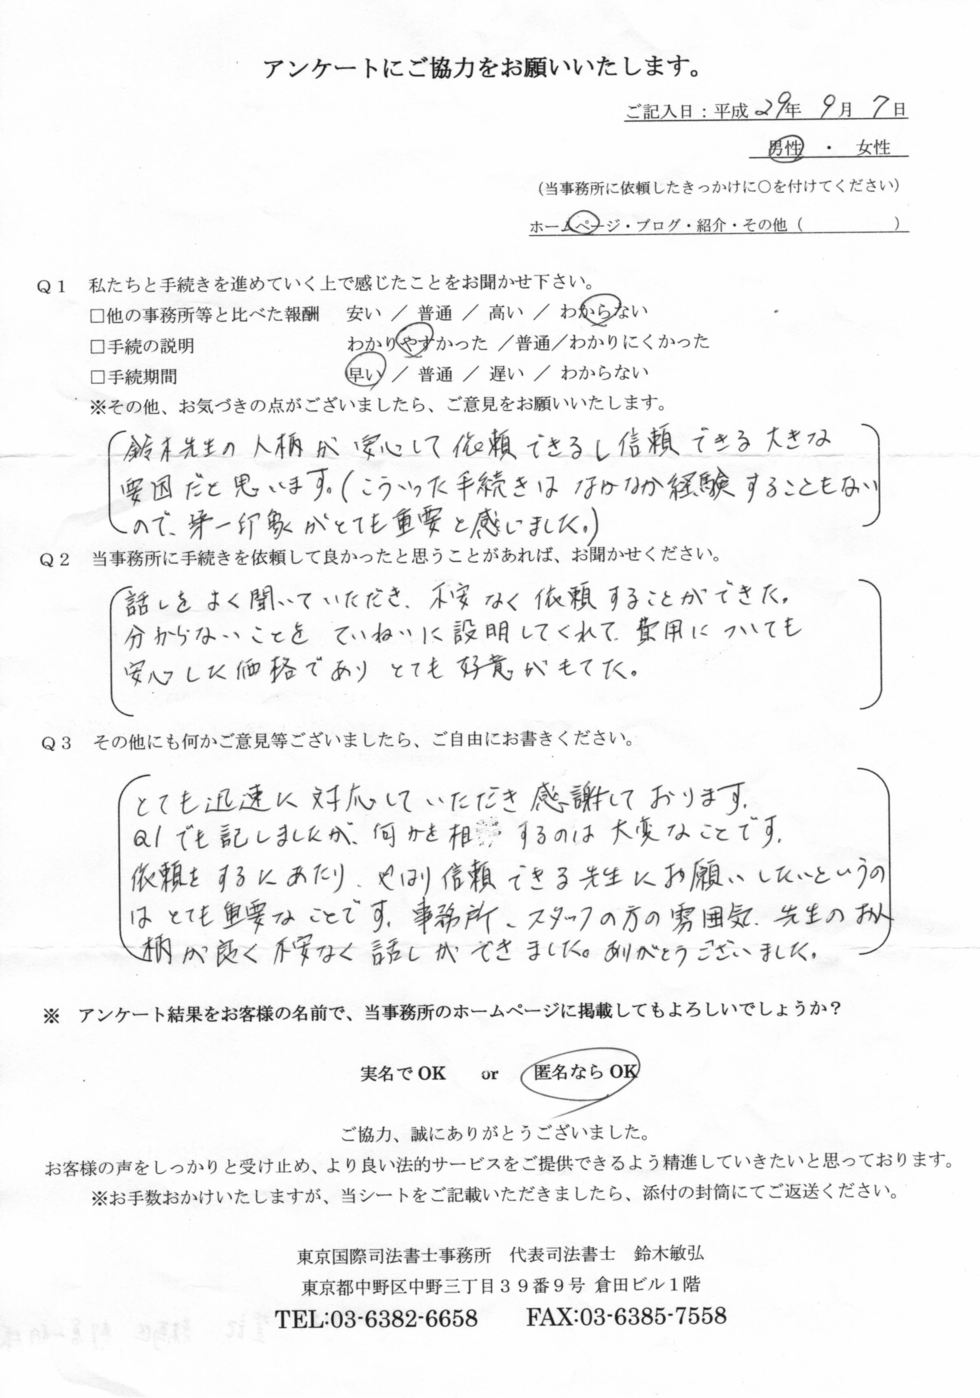 アンケートにご協力をお願いいたします。
ご記入日：平成 29年 9月 7日
男性 ・ 女性
（当事務所に依頼したきっかけに○を付けてください）
ホームページ・ブログ・紹介・その他（　　　　　）
Ｑ１　私たちと手続きを進めていく上で感じたことをお聞かせ下さい。
□他の事務所等と比べた報酬　安い ／ 普通 ／ 高い ／ わからない
□手続の説明　わかりやすかった ／普通／わかりにくかった
□手続期間　早い ／ 普通 ／ 遅い ／ わからない
※その他、お気づきの点がございましたら、ご意見をお願いいたします。
鈴木先生の人柄が安心して依頼できるし信頼できる大きな
要因だと思います。(こういった手続きはなかなか経験することもない
ので、第一印象がとても重要と感じました。)
Ｑ２　当事務所に手続きを依頼して良かったと思うことがあれば、お聞かせください。
話しをよく聞いていただき、不安なく依頼することができた。
分からないことをていねいに説明してくれて、費用についても
安心した価格でありとても好意がもてた。
Ｑ３　その他にも何かご意見等ございましたら、ご自由にお書きください。
とても迅速に対応していただき感謝しております。
Q1でも記しましたが、何かを相 するのは大変なことです。
依頼をするにあたり、やはり信頼できる先生にお願いしたいというの
はとても重要なことです。事務所、スタッフの方の雰囲気、先生のお人
柄が良く不安なく話しができました。ありがとうございました。
※　アンケート結果をお客様の名前で、当事務所のホームページに掲載してもよろしいでしょうか？
実名でOK　or　匿名ならOK
ご協力、誠にありがとうございました。
お客様の声をしっかりと受け止め、より良い法的サービスをご提供できるよう精進していきたいと思っております。
※お手数おかけいたしますが、当シートをご記載いただきましたら、添付の封筒にてご返送ください。
東京国際司法書士事務所　代表司法書士　鈴木敏弘
東京都中野区中野三丁目３９番９号 倉田ビル１階
TEL:03-6382-6658　FAX:03-6385-7558